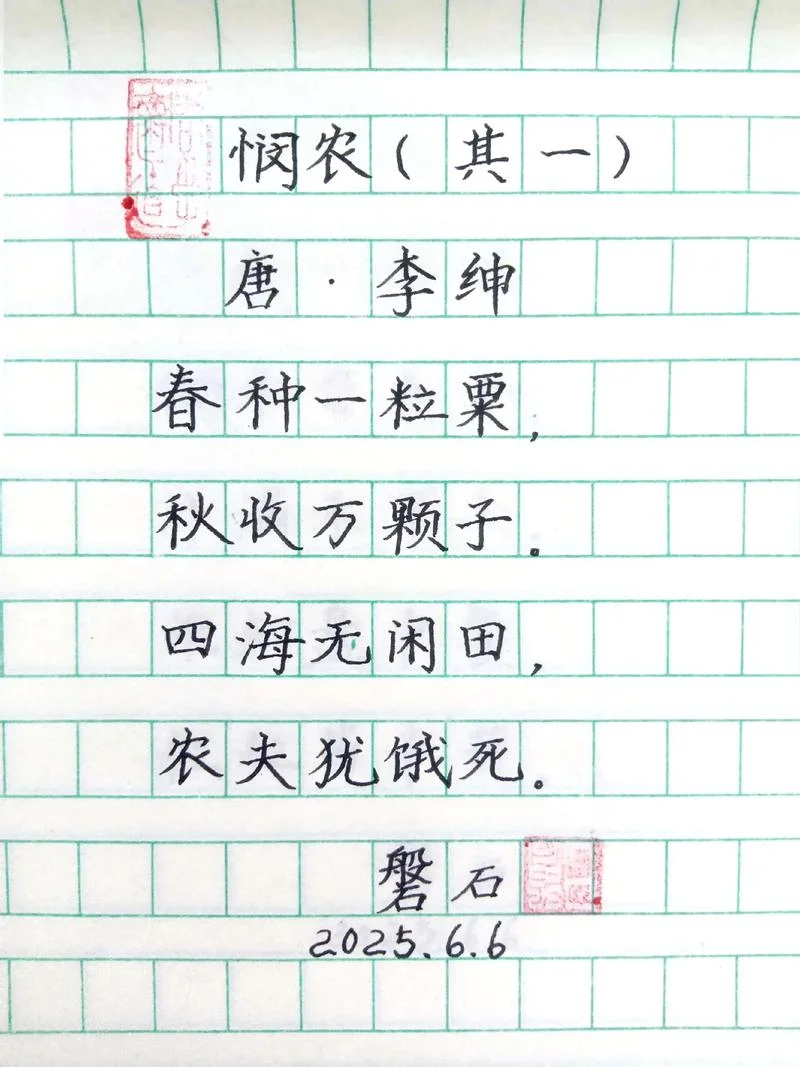 悯农（其一）
唐·李绅
春种一粒粟，
秋收万颗子。
四海无闲田，
农夫犹饿死。
磐石
2025.6.6